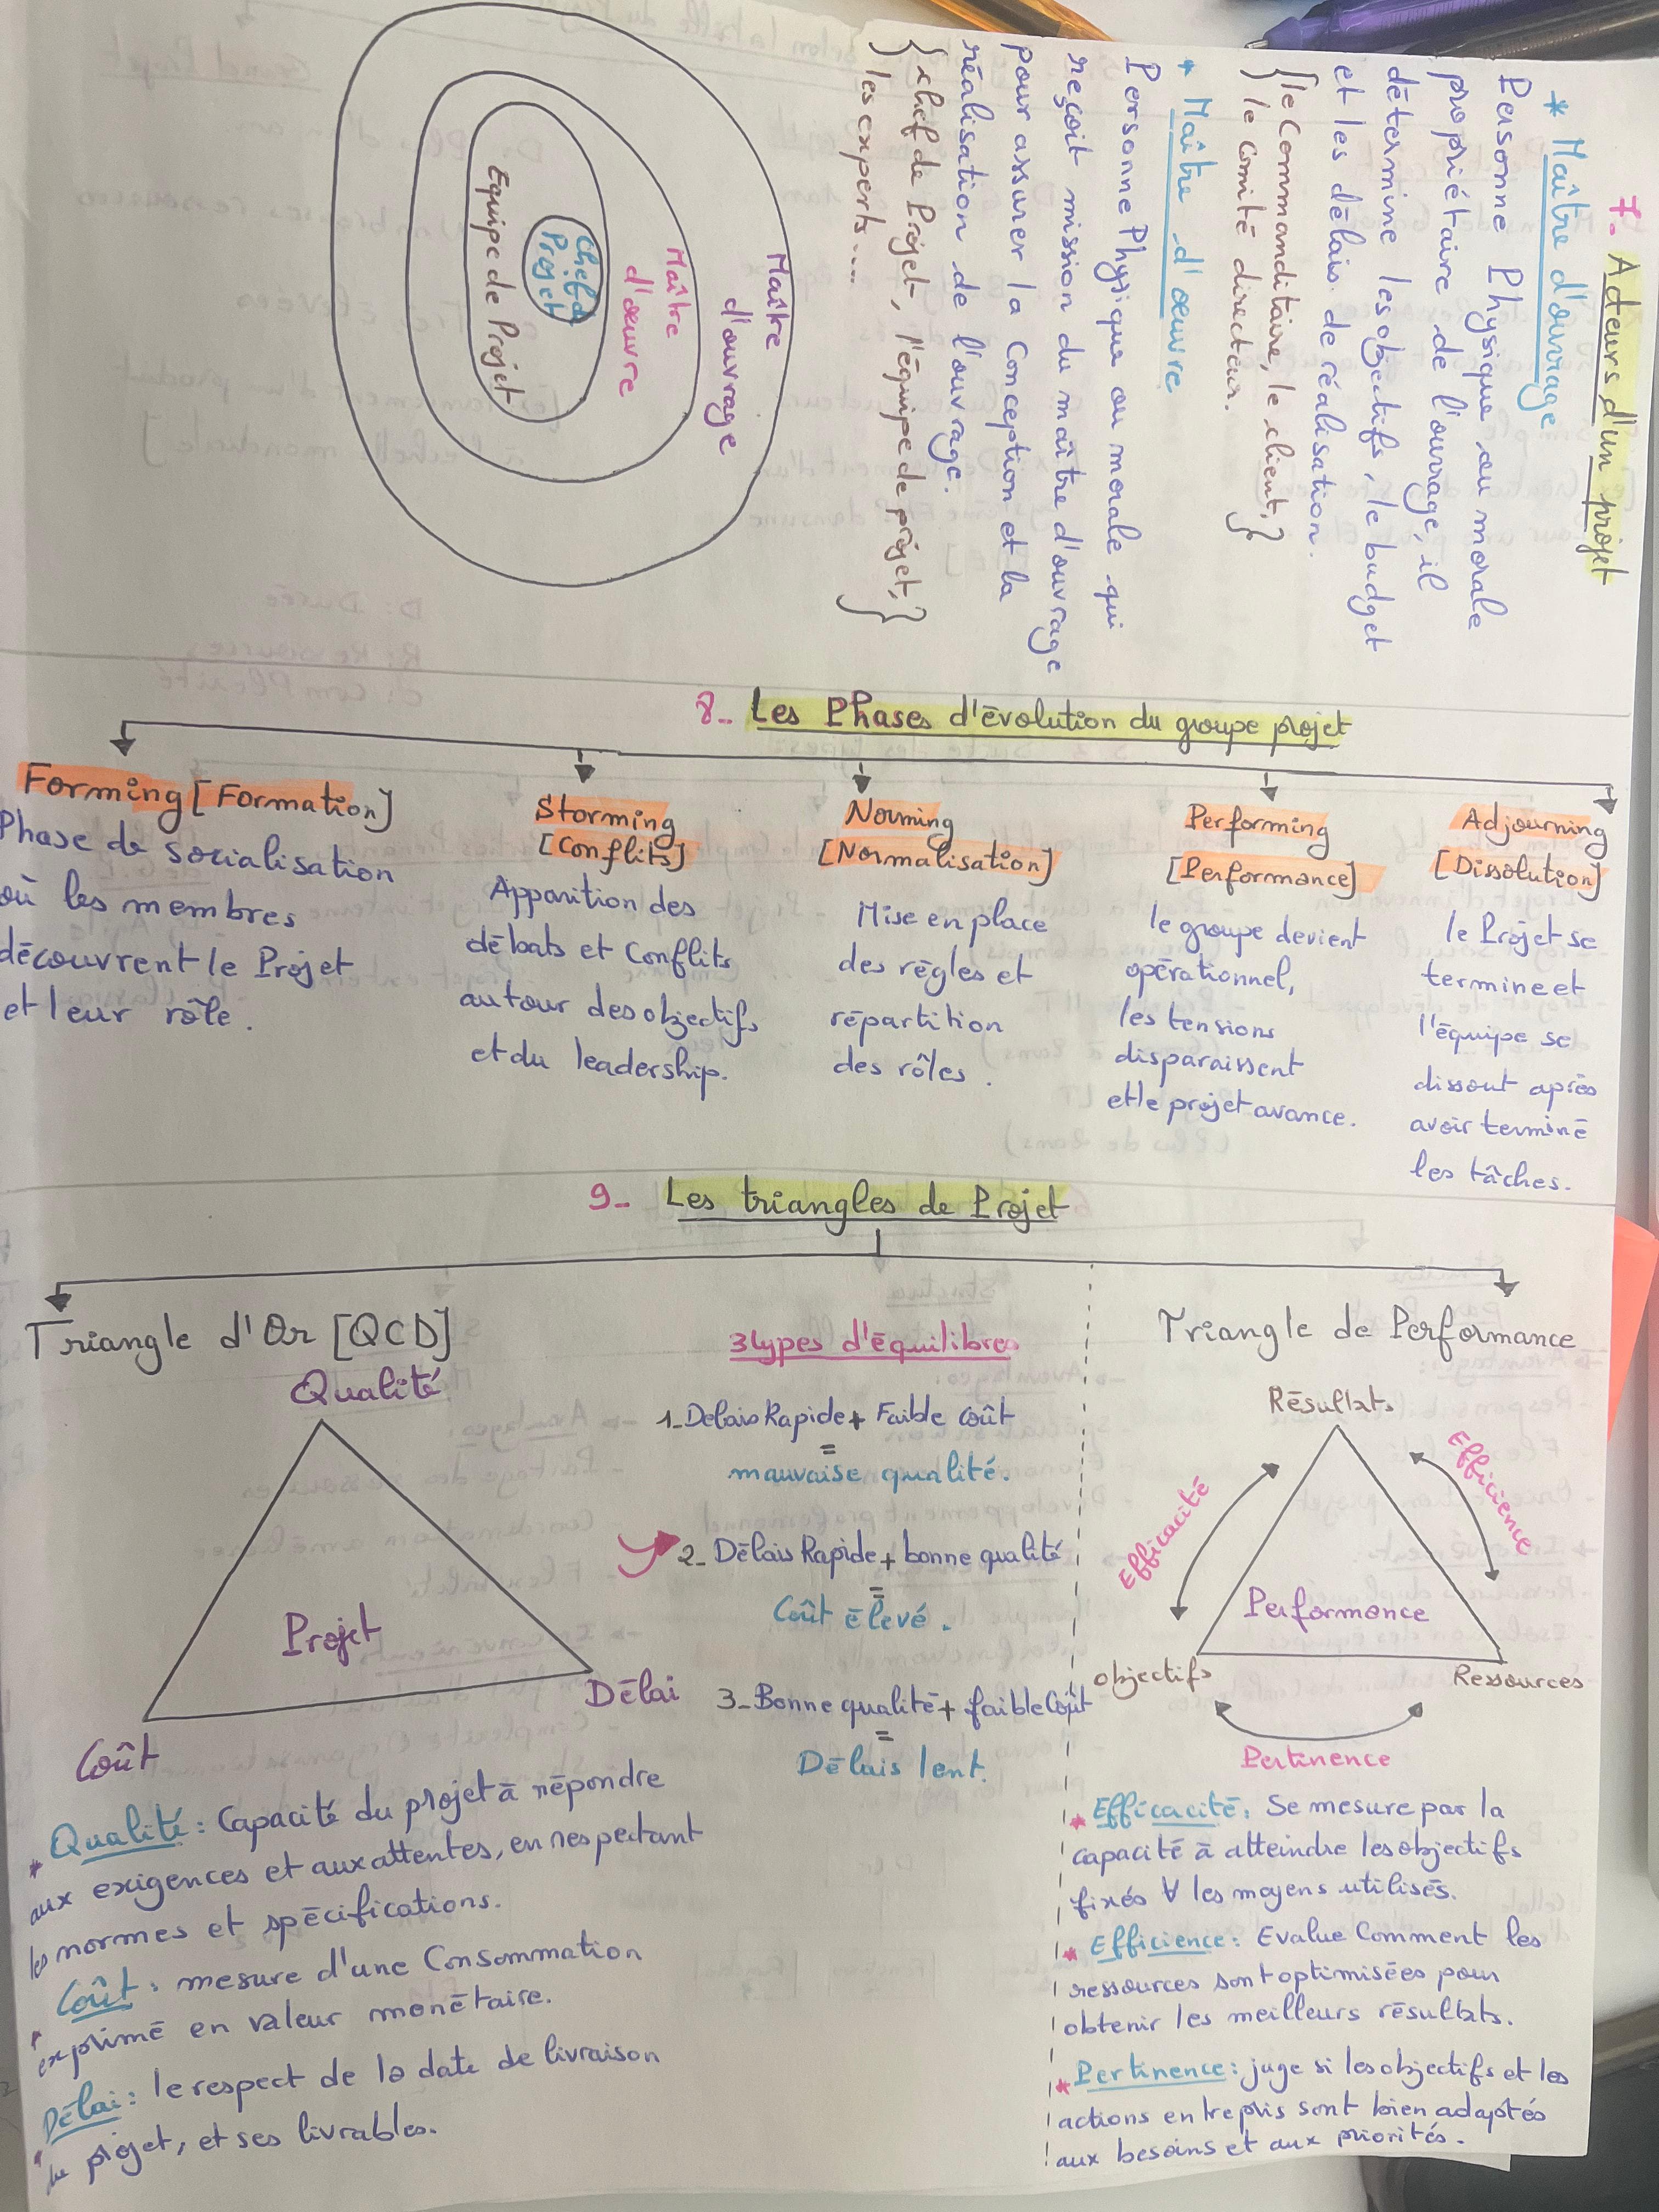 7- Acteurs d'un projet
* Maître d'ouvrage
Personne Physique ou morale
propriétaire de l'ouvrage, il
détermine les objectifs, le budget
et les délais de réalisation.
{le Commanditaire, le client,}
{le Comité directeur.}
* Maître d'œuvre
Personne Physique ou morale qui
reçoit mission du maître d'ouvrage
pour assurer la Conception et la
réalisation de l'ouvrage.
{chef de Projet, l'équipe de projet,}
{les experts....}
Maître
d'ouvrage
Maître
d'œuvre
Chef de
Projet
Equipe de Projet
8- Les Phases d'évolution du groupe projet
Forming [Formation]
Phase de socialisation
où les membres
découvrent le Projet
et leur rôle.
Storming
[Conflits]
Apparition des
débats et Conflits
autour des objectifs
et du leadership.
Norming
[Normalisation]
Mise en place
des règles et
répartition
des rôles.
Performing
[Performance]
le groupe devient
opérationnel,
les tensions
disparaissent
et le projet avance.
Adjourning
[Dissolution]
le Projet se
termine et
l'équipe se
dissout après
avoir terminé
les tâches.
9- Les triangles de Projet
Triangle d'Or [QCD]
Qualité
Projet
Délai
Coût
* Qualité : Capacité du projet à répondre
aux exigences et aux attentes, en respectant
les normes et spécifications.
* Coût : mesure d'une Consommation
exprimé en valeur monétaire.
* Délai : le respect de la date de livraison
du projet, et ses livrables.
3 types d'équilibres
1- Delais Rapide + Faible Coût
=
mauvaise qualité.
2- Délais Rapide + bonne qualité
=
Coût élevé.
3- Bonne qualité + faible Coût
=
Délais lent.
Triangle de Performance
Résultats
Efficacité
Efficience
Performance
objectifs
Ressources
Pertinence
* Efficacité : Se mesure par la
capacité à atteindre les objectifs
fixés ∀ les moyens utilisés.
* Efficience : Evalue Comment les
ressources sont optimisées pour
obtenir les meilleurs résultats.
* Pertinence : juge si les objectifs et les
actions entrepris sont bien adaptés
aux besoins et aux priorités.